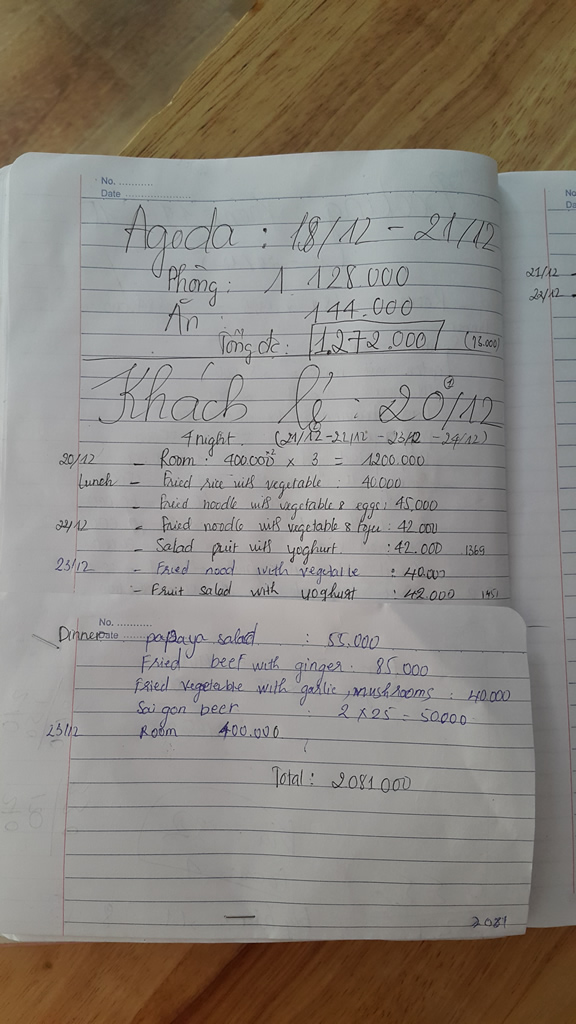 No. ...........
Date ......................
Agoda : 18/12 - 21/12
Phòng : 1 128.000
Ăn : 144.000
Tổng : 1.272.000 (73.000)
Khách lẻ : 20/12
4 night. (21/12 - 22/12 - 23/12 - 24/12)
20/12 - Room : 400.000 × 3 = 1200.000
Lunch - Fried rice with vegetable : 40.000
- Fried noodle with vegetable & eggs : 45.000
22/12 - Fried noodle with vegetable & tofu : 42.000
- Salad fruit with yoghurt : 42.000 1369
23/12 - Fried nood with vegetable : 40.000
- Fruit salad with yoghurt : 42.000 1451
No. ...........
Date
Dinner papaya salad : 55.000
Fried beef with ginger : 85.000
Fried vegetable with garlic, mushrooms : 40.000
Sai gon beer : 2 × 25 = 50.000
23/12 Room 400.000
Total : 2081.000
2081
No
Da
21/12 -
22/12 -